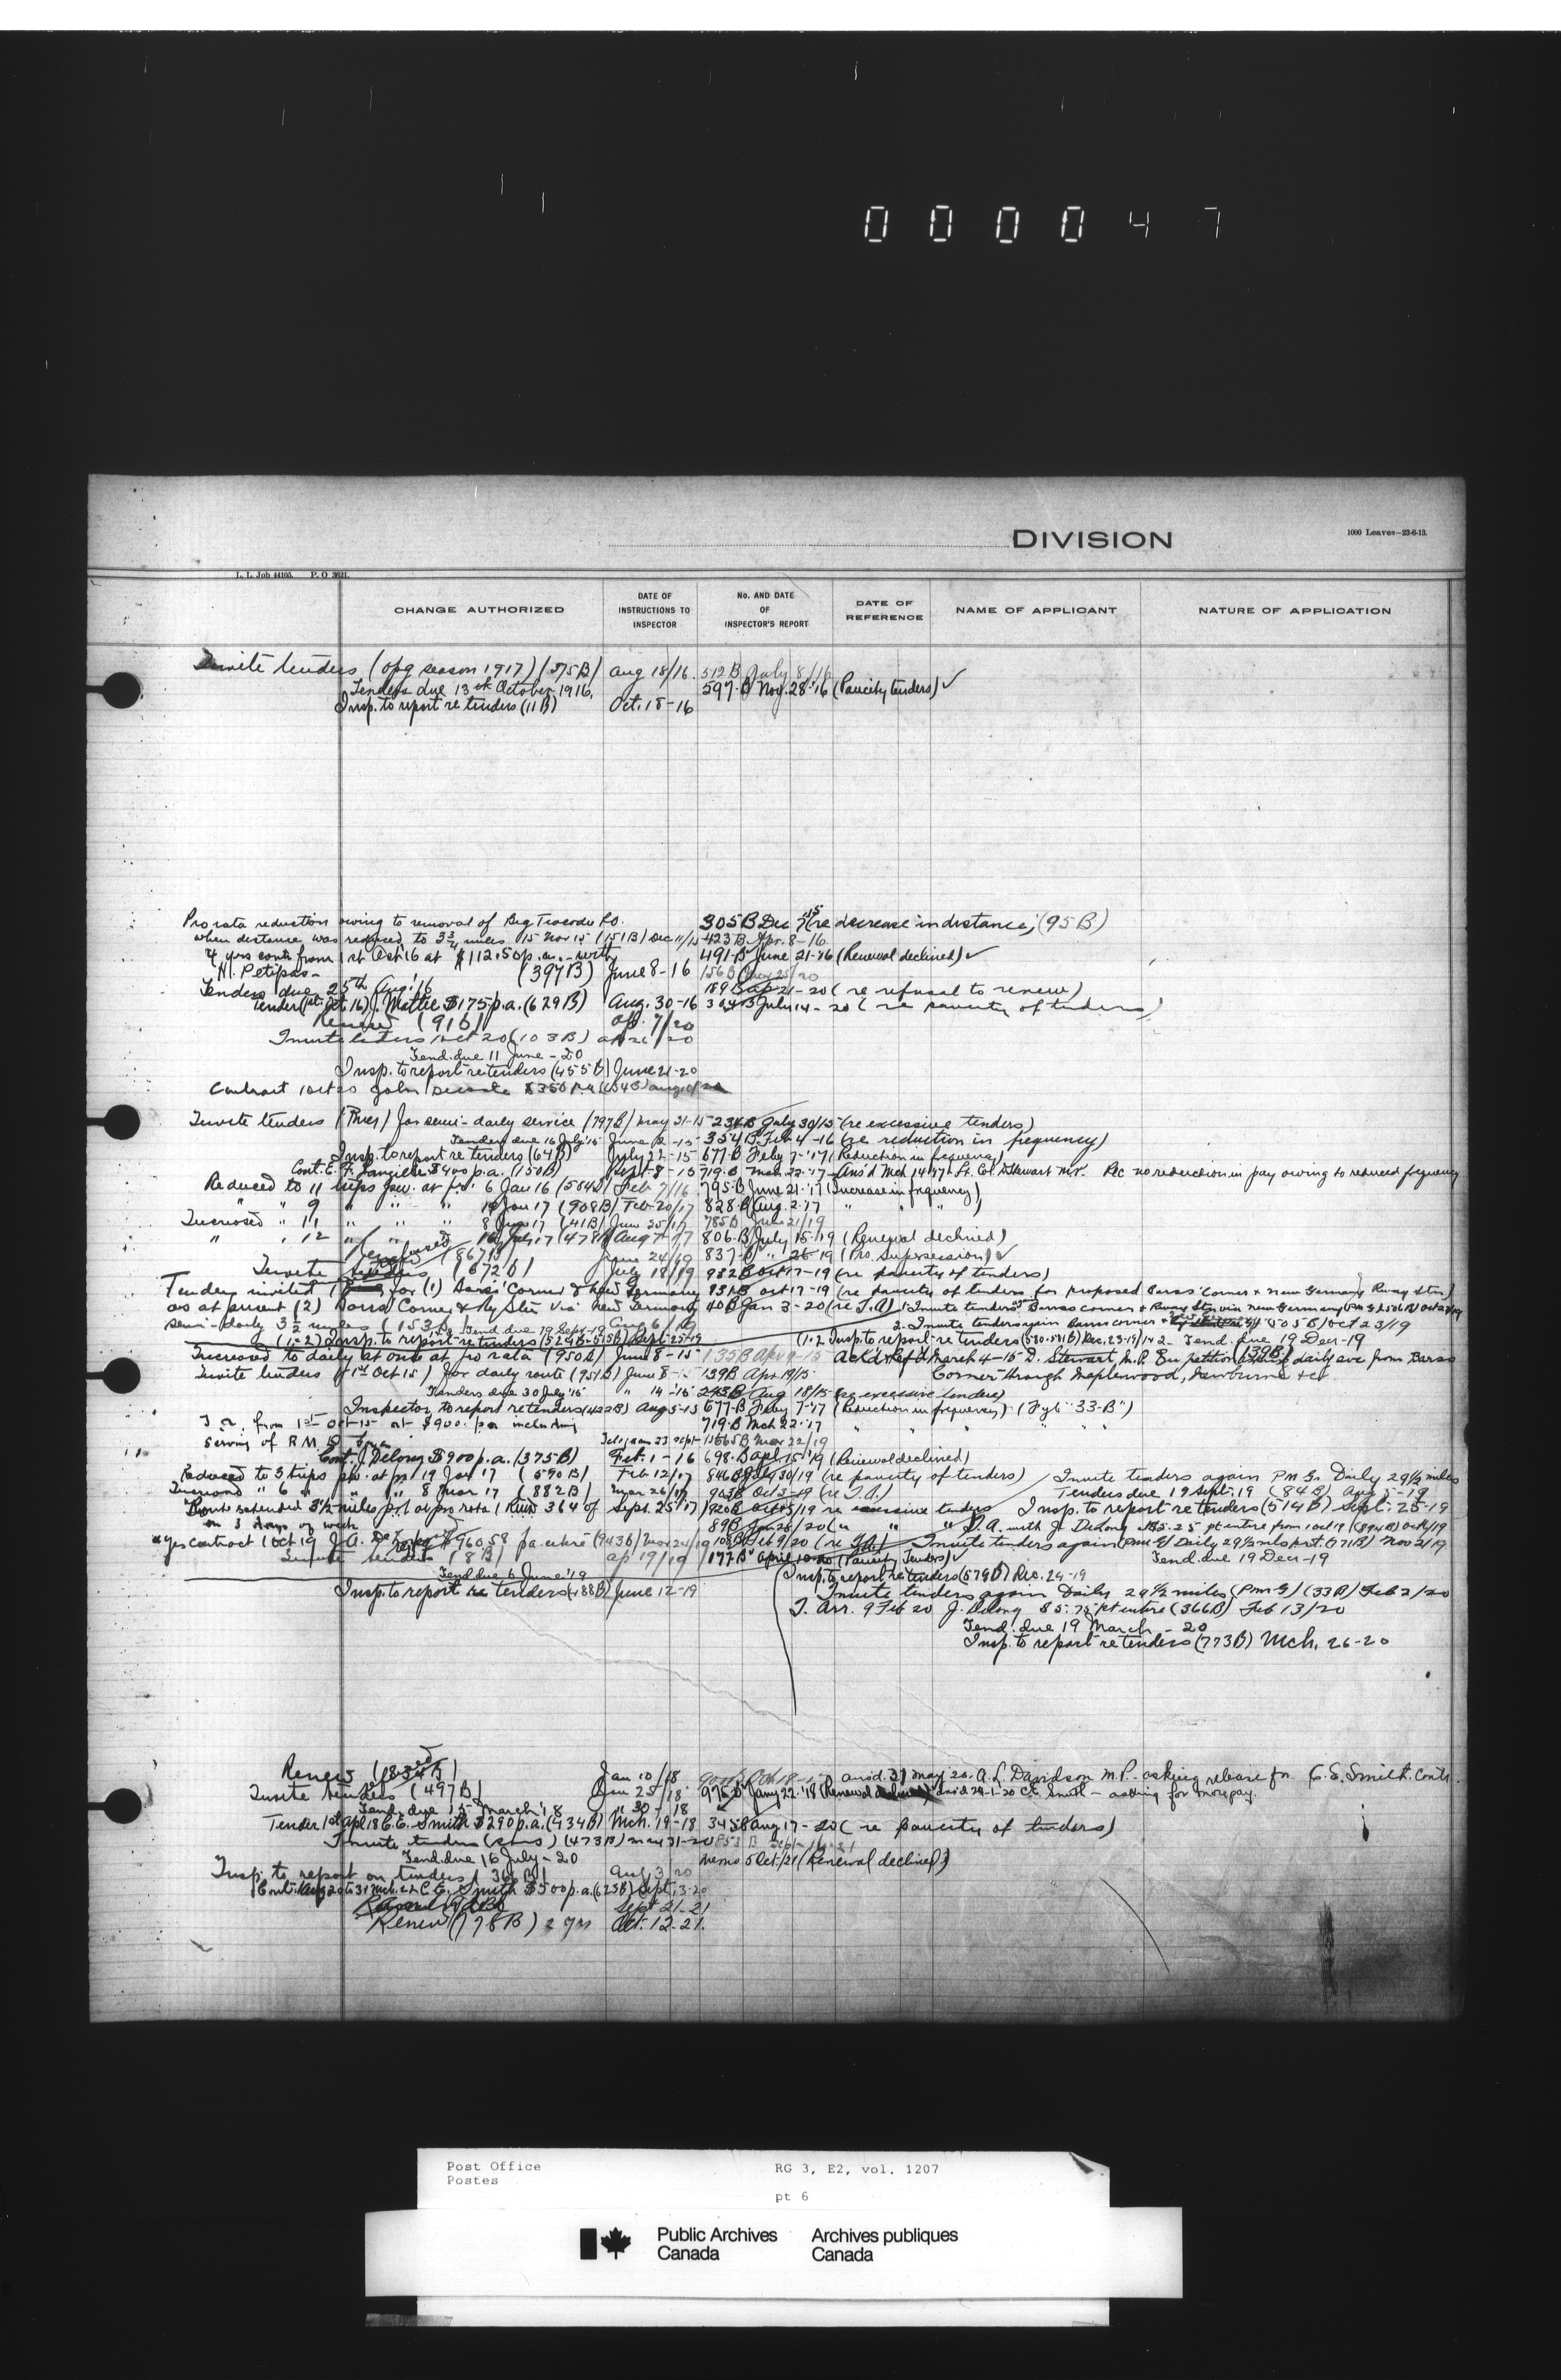 000047
DIVISION
1000 Leaves—23-6-13.
L. L. Job 44105. P. O 3621.
CHANGE AUTHORIZED
DATE OF INSTRUCTIONS TO INSPECTOR
No. AND DATE OF INSPECTOR'S REPORT
DATE OF REFERENCE
NAME OF APPLICANT
NATURE OF APPLICATION
Invite tenders (opg season 1917) (375B) Aug 18/16. 512B July 8/16
Tenders due 13th October 1916. 597-B Nov. 28-'16 (Paucity tenders) ✓
Insp. to report re tenders (11B) Oct. 18-16
Pro rata reduction owing to removal of Big Tracadie P.O. 305B Dec 7/15 (re decrease in distance, (95B)
when distance was reduced to 3¾ miles 15 Nov 15 (151B) Dec 11/15 423B Apr. 8-16
4 yrs cont. from 1st Oct 16 at $112.50 p.a. - with 491-B June 21-'16 (Renewal declined) ✓
H. Petipas- (397B) June 8-16 156B
Tenders due 25th Aug. '16 189B Ap 21-20 (re refusal to renew)
Tender (1st Oct 16) J. Mattie $175 p.a. (629B) Aug. 30-16 304B July 14-20 (re paucity of tenders)
(916) Ap. 7/20
Invite tenders 1 Oct 20 (103B) Ap 26/20
Tend. due 11 June-20
Insp. to report re tenders (455B) June 21-20
Contract 1 Oct 20 John $350 p.a.
Invite tenders for semi-daily service (797B) May 21-15 234B July 30/15 (re excessive tenders)
Tenders due 16 July '15 June 2-15 354B Feb 4-16 (re reduction in frequency)
Insp. to report re tenders (64B) July 22-15 677-B Feby 7-'17 (Reduction in frequency)
Cont. E. F. $400 p.a. (150B) Sept-8-15 719-B Mch. 22-'17 - Ans'd Mch 14 '17 - Lt. Col. Stewart M.P. Rec no reduction in pay owing to reduced frequency
Reduced to 11 trips pw. at p.r. 6 Jan 16 (584B) Feb 7/16 795-B June 21-'17 (Increase in frequency)
" " 9 " " " Jan 17 (908B) Feb-20/17 828-B Aug. 2-'17 " " "
Increased " 11 " " " 8 June 17 (41B) June 25/17 785B June 21/19
" " 12 " " July 17 (478B) Aug 7-17 806-B July 15-'19 (Renewal declined)
(867B) June 24/19 837-B " 26-'19 (Pro. Supersession) ✓
Invite tenders (672B) July 18/19 932B Oct 17-19 (re paucity of tenders)
Tenders invited for (1) Barss' Corner & New Germany 931B Oct 17-19 (re paucity of tenders for proposed Barss' Corner & New Germany Rway Stn)
as at present (2) Barss' Corner & Ry Stn via New Germany 40B Jan 3-20 (re T.A) 1. Invite tenders Barss Corner & Rway Stn via New Germany
semi-daily 3½ miles (153B) Aug 6/19 2. Invite tenders again Barss Corner (505B) Oct 23/19
Tend. due 19 Sept-19
(1-2) Insp. to report re tenders (524B-515B) Sept-25-19 (1-2 Insp. to report re tenders (580-581B) Dec. 23-19) 1 & 2 - Tend. due 19 Dec-19
Increased to daily at once at pro rata (950B) June 8-15 135B Apr 9-15 Ack'd & Ref'd March 4-15 D. Stewart, M.P. Encl petition (139B) daily svc from Barss
Invite tenders (1st Oct 15) for daily route (951B) June 8- 139B Apr. 19/15 Corner through Maplewood, Newburne &c
Tenders due 30 July '15 " 14-'15 243B Aug 18/15 (re excessive tenders)
Inspector to report re tenders (422B) Aug 5-15 677-B Feby 7-'17 (Reduction in frequency) (Fyl "33-B")
T.A. from 1st Oct-15 at $900. p.a. including 719-B Mch 22-'17 " " "
serving of R.M.B Telegram 23 Sept-15 665B Mar 22/19
Cont. J. Delong $900 p.a. (375B) Feb. 1-16 698-B Apl. 15-'19 (Renewal declined)
Reduced to 3 trips pw. at pr 19 Jan 17 (590B) Feb 12/17 846B July 30/19 (re paucity of tenders) Invite tenders again PMG. Daily 29½ miles
Increased " 6 " " " 8 Mar 17 (882B) Mar 26/17 903B Oct 3-19 (re T.A.) Tenders due 19 Sept-19 (84B) Aug 5-19
Route extended 3½ miles p.t. at pro rata Sept. 25-17 920B Oct 15/19 re excessive tenders Insp. to report re tenders (514B) Sept. 25-19
on 3 days of week 89B Jan 26/20 (" " " T.A. with J. DeLong $5.25 pt entire from 1 Oct 19 (394B) Oct 14/19
yes contract 1 Oct 19 J. A. DeLong $960.58 p.a. entire (943B) Mar 24/19 108B Feb 9/20 (re T.A.) Invite tenders again (PMG) Daily 29½ mls p.r.t. (771B) Nov 21/19
Invite tenders (8B) Ap 19/19 177B April 10-20 (Paucity Tenders) ✓ Tend due 19 Dec-19
Tend. due 6 June '19 Insp. to report re tenders (579B) Dec. 24-19
Insp. to report re tenders (188B) June 12-19 Invite tenders again Daily 29½ miles (PMG) (33B) Feb 2/20
T. Arr. 9 Feb 20 J. Delong $5.75 pt entire (366B) Feb 13/20
Tend. due 19 March - 20
Insp. to report re tenders (773B) Mch. 26-20
Renew (834B) Jan 10/18 ansd. 31 May 20. A. L. Davidson M.P. asking release for C. E. Smith. Contr.
Invite tenders (497B) Jan 25/18 976B Jany 22-'18 (Renewal declined) ansd 24-1-20 C. E. Smith - asking for more pay.
Tend. due 15 March '18 " 30-18
Tender 1st Apl 18 C. E. Smith $290 p.a. (934B) Mch. 19-18 345B Aug 17-20 (re paucity of tenders)
Invite tenders (473B) May 31-20
Tend. due 16 July-20 Memo 5 Oct./21 (Renewal declined)
Insp. to report on tenders (36B) Aug 3/20
Cont. Aug 20 to 31 Mch. 22 C. E. Smith $500 p.a. (625B) Sept. 13-20
Sept 21-21
Renew (778B) 2 yrs Oct. 12-21.
Post Office
Postes
RG 3, E2, vol. 1207
pt 6
Public Archives Canada
Archives publiques Canada